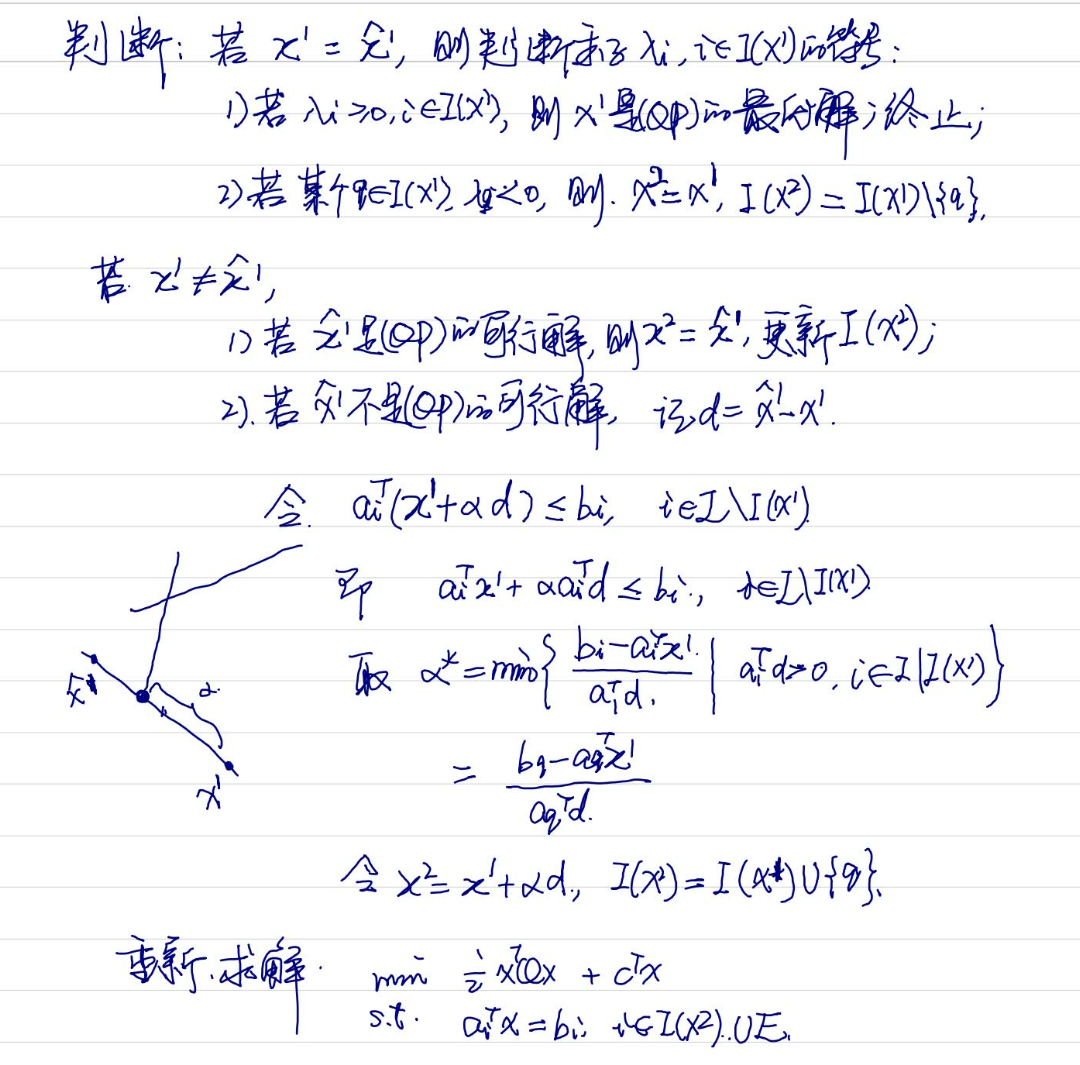 判断: 若 x¹ = x̂¹, 则判断乘子 λi, i∈I(x¹)的符号:
1) 若 λi ≥0, i∈I(x¹), 则 x¹是(QP)的最优解; 终止;
2) 若某个q∈I(x¹), λq<0, 则. x²=x¹, I(x²) = I(x¹)\{q}.
若. x¹ ≠ x̂¹,
1) 若 x̂¹是(QP)的可行解, 则x² = x̂¹, 更新I(x²);
2). 若 x̂¹不是(QP)的可行解, 记d = x̂¹-x¹.
令. aiᵀ(x¹+αd) ≤ bi, i∈I\I(x¹).
即 aiᵀx¹ + αaiᵀd ≤ bi., i∈I\I(x¹)
取 α* = min{ (bi-aiᵀx¹)/(aiᵀd.) | aiᵀd>0, i∈I\I(x¹) }
x̂¹ α
= (bq-aqᵀx¹)/(aqᵀd.)
x¹
令 x² = x¹+αd, I(x²) = I(x¹)∪{q}.
重新求解. min ½xᵀQx + cᵀx
s.t. aiᵀx = bi, i∈I(x²)∪E.